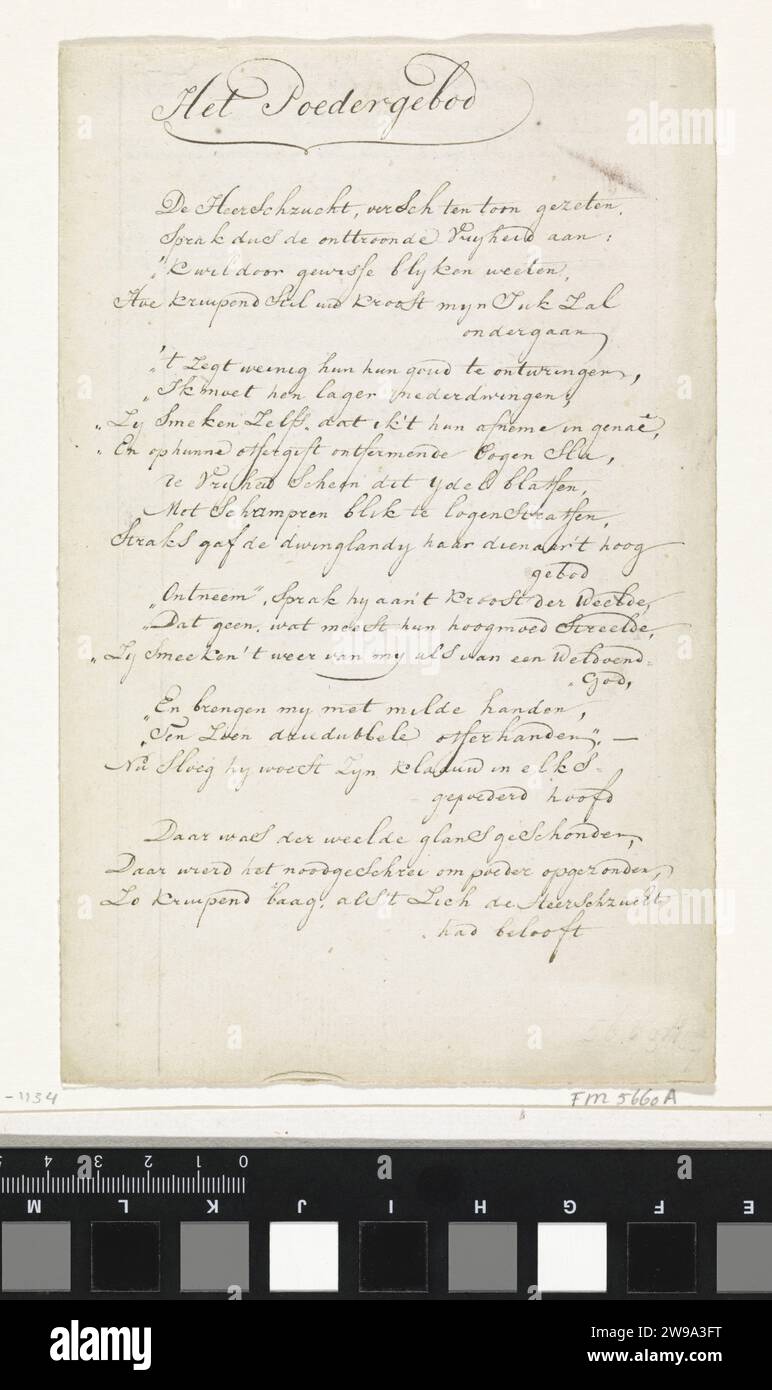 Het Poedergebod
De HeerSchzucht, verSch ten toon gezeten,
Sprak dus de onttroonde Vryheid aan:
„'k wil door gewisse blyken weeten,
Hoe kruipend Stil uw kroost myn Juk Zal
ondergaan,
„'t Zegt weinig hun hun goud te ontwringen,
„Ik moet hen lager nederdwingen,
„Zy Smeken Zelfs, dat ik 't hun afneme in genaê,
„En op hunne offergift ontfermende oogen Sla,
de Vryheid Scheen dit ydel blaffen,
Met Schampren blik te logenStraffen,
Straks gaf de dwinglandy haar dienaar 't hoog
gebod
„Ontneem", Sprak hy aan 't kroost der weelde,
„Dat geen, wat meest hun hoogmoed Streelde,
„Zy Smeeken 't weer van my als van een Weldoend=
„God,
„En brengen my met milde handen,
„Ten Zoen driedubbele offerhanden". —
Nu Sloeg hy woest Zyn klaauw in elks-
gepoederd hoofd
Daar was der weelde glans geSchonden,
Daar wierd het noodgeSchrei om poeder opgezonden,
Zo kruipend laag, als 't Zich de HeerSchzucht
had belooft
-1134
FM 5660A
0 1 2 3 4 5
M L K J I H G F E
alamy
Image ID: 2W9A3FT
www.alamy.com